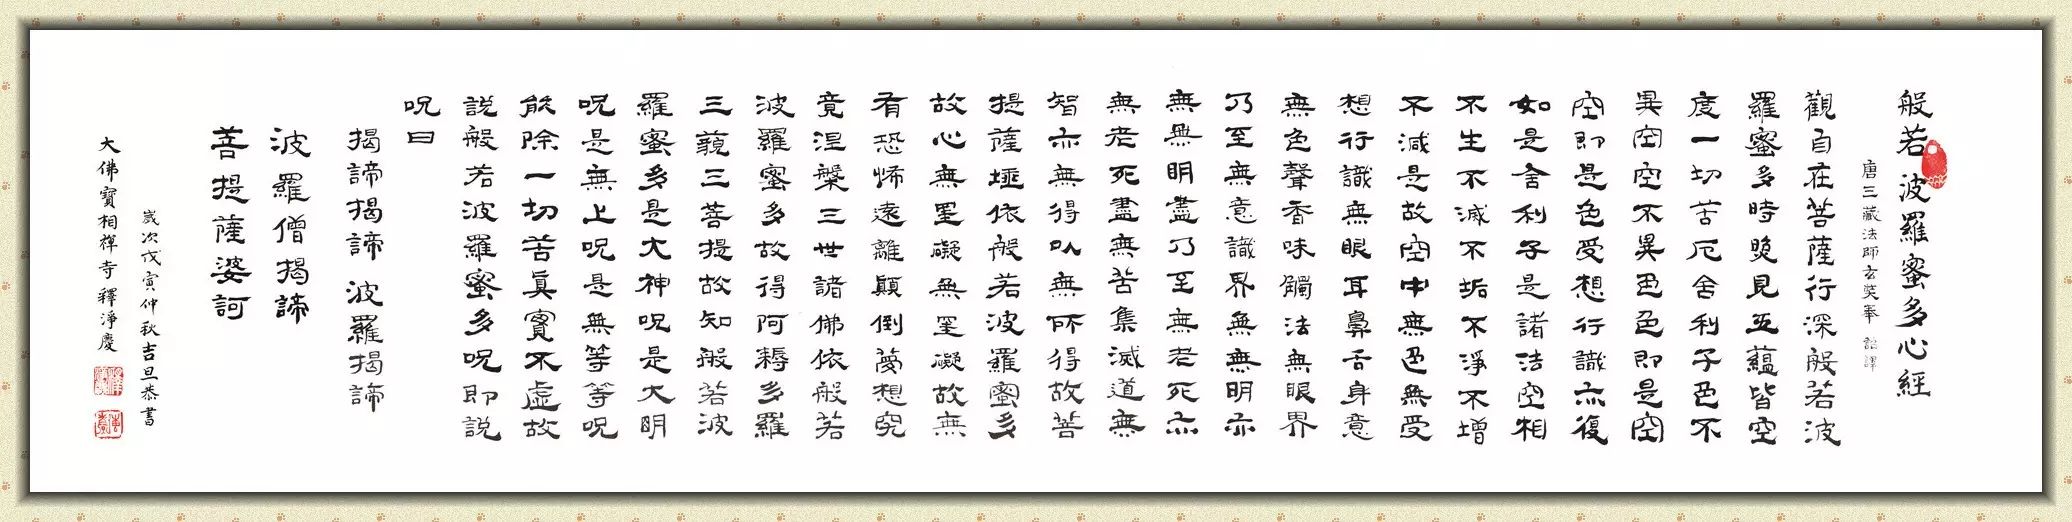 般若波羅蜜多心經
唐三藏法師玄奘奉 詔譯
觀自在菩薩行深般若波
羅蜜多時照見五蘊皆空
度一切苦厄舍利子色不
異空空不異色色即是空
空即是色受想行識亦復
如是舍利子是諸法空相
不生不滅不垢不淨不增
不減是故空中無色無受
想行識無眼耳鼻舌身意
無色聲香味觸法無眼界
乃至無意識界無無明亦
無無明盡乃至無老死亦
無老死盡無苦集滅道無
智亦無得以無所得故菩
提薩埵依般若波羅蜜多
故心無罣礙無罣礙故無
有恐怖遠離顛倒夢想究
竟涅槃三世諸佛依般若
波羅蜜多故得阿耨多羅
三藐三菩提故知般若波
羅蜜多是大神呪是大明
呪是無上呪是無等等呪
能除一切苦真實不虛故
說般若波羅蜜多呪即說
呪曰
揭諦揭諦 波羅揭諦
波羅僧揭諦
菩提薩婆訶
歲次戊寅仲秋吉旦恭書
大佛寶相禪寺釋淨慶